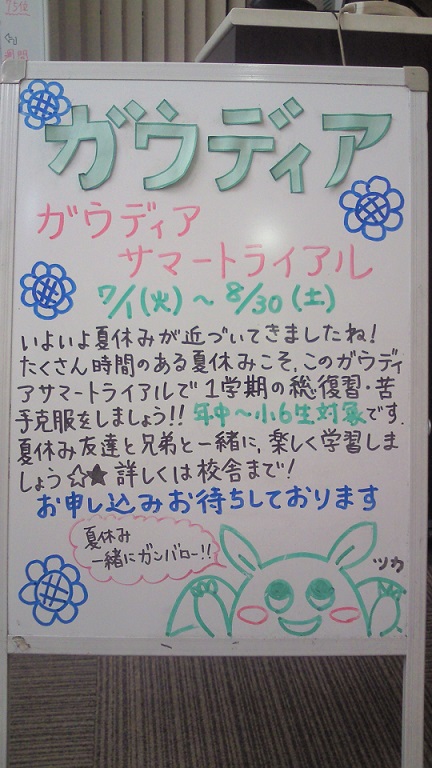 75位
ガウディア
ガウディア
サマートライアル
7/1(火)~8/30(土)
いよいよ夏休みが近づいてきましたね!
たくさん時間のある夏休みこそ、このガウディ
アサマートライアルで1学期の総復習・苦
手克服をしましょう!!年中~小6生対象です。
夏休み友達と兄弟と一緒に、楽しく学習しま
しょう☆★詳しくは校舎まで!
お申し込みお待ちしております
夏休み
一緒にガンバロー!!
ツカ